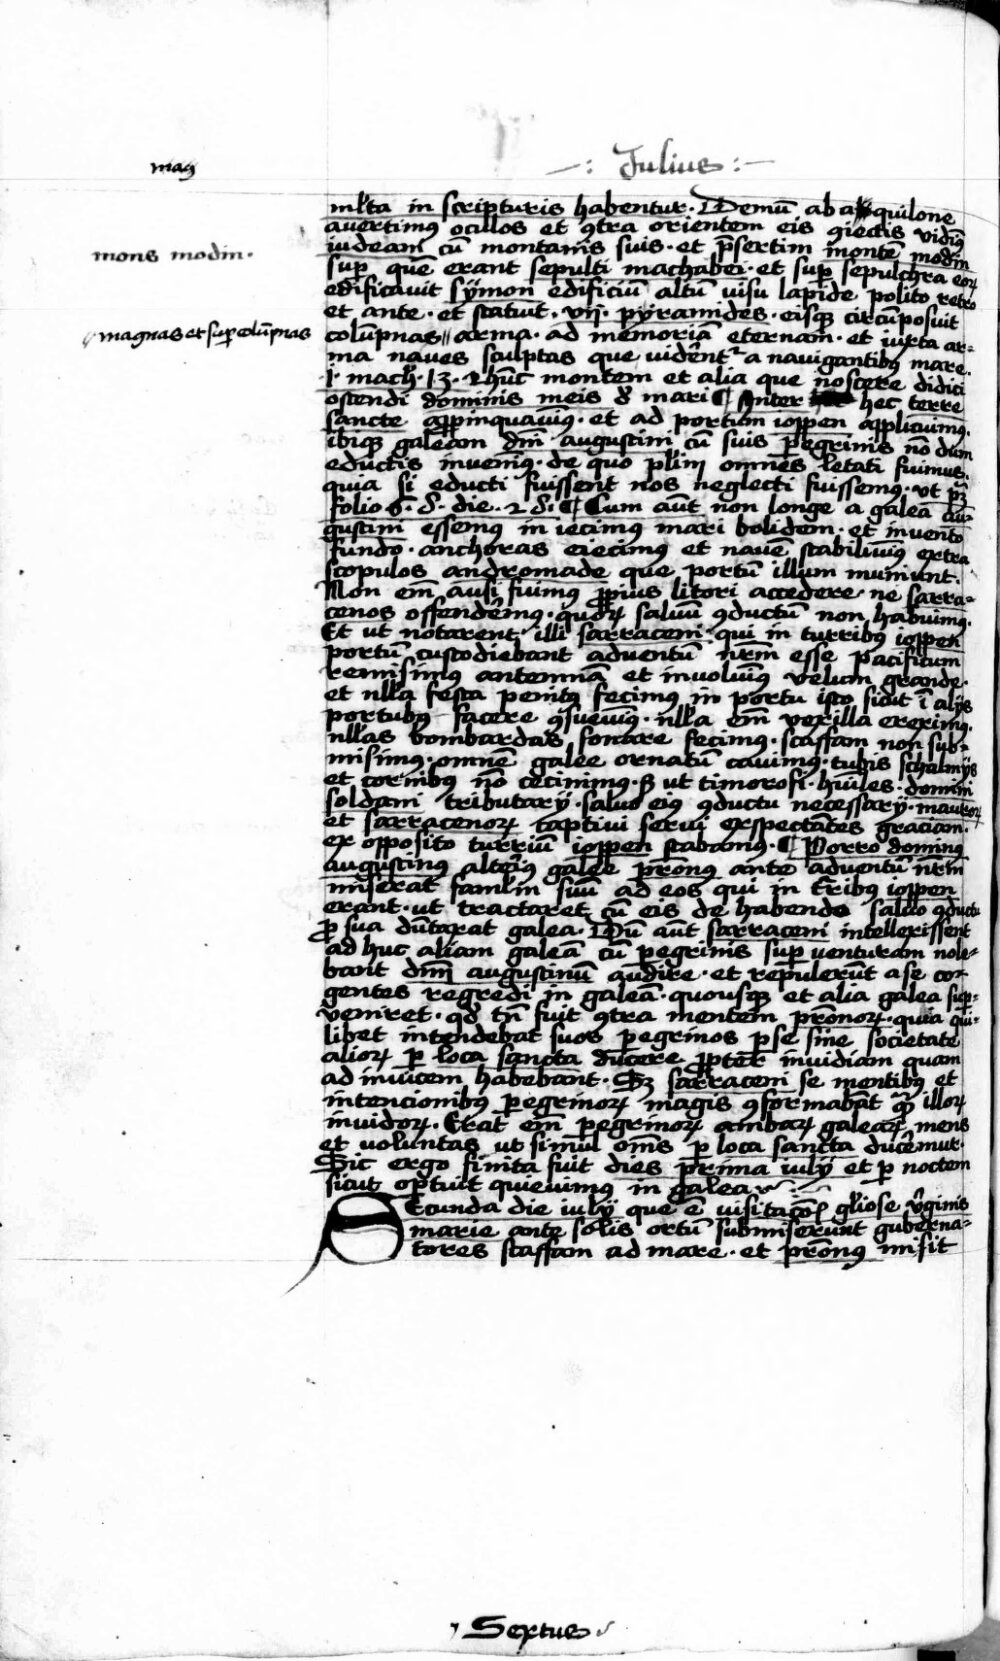 mag9
-: Julius :-
ml'ta in scripturis habentur. Demū ab aquilone
avertimus ocl'os et 9tra orientem eis 9iectis vidim9
mons modin.
iudeam cū montanis suis. et p̄sertim montē modin
sup quē erant sepulti machabei. et sup sepulchra eoꝝ
edificavit sÿmon edificiū altū visu lapide polito retro
et ante. et statuit. vii. pyramides. eisqꝫ circūposuit
magnas et sup colūpnas
colūpnas arma. ad memoriā eternam. et iuxta ar=
ma naves sculptas que vidēnt2 a navigantibus mare.
i. mach. 13. 2 hūc montem et alia que noscere didici
ostendi dominis meis d' mari ¶ Inter hec terre
sancte appinquavim9. et ad portum ioppen applicuimus.
ibiqꝫ galeam dm̄ augustini cū suis pegrinis nō dum
eductis invenim9. de quo pl'im omnes letati fuimus.
quia si educti fuissent nos neglecti fuissemus. ut pꝫ
folio 6. 8. die. 28. ¶ Cum aūt non longe a galea au=
gustini essemus in iecimus mari bolidem. et invento
fundo. anchoras eiecimus et navē stabilivim9 extra
scopulos andromade que portū illum muniunt.
Non em̄ ausi fuimus ppius litori accedere ne sarra=
cenos offendēmus. quoꝝ salvū 9ductū non habuimus.
Et ut notarent illi sarraceni qui in turribus ioppen
portū custodiebant adventū nr̄m esse pacificum
remisimus antemnā et involvim9 velum grande.
et nl'la festa penitus fecimus in portu isto sicut ī alijs
portubus facere 9suevim9. nl'la em̄ vexilla ereximus.
nl'las bombardas sonare fecimus. scaffam non sub=
misimus. omnē galee ornatū cavimus. tubis schalmijs
et cornibus nō cecinimus. sꝫ ut timorosi. hūiles. domini
soldani tributarÿ. salvo eius 9ductu necessarÿ. mauroꝝ
et sarracenoꝝ captivi servi exspectātes graciam.
ex opposito turriū ioppen stabamus. ¶ Porro dominus
augustinus alteri9 galee pronus ante adventū nr̄m
miserat famlm suū ad eos qui in tribus ioppen
erant. ut tractaret cū eis de habendo salvo 9ductu
p sua dūtaxat galea. Dū aūt sarraceni intellexissent
ad huc aliam galeā cū pegrinis sup venturam nole=
bant dm̄ augustinū audire. et repulerūt a se co=
gentes regredi in galeā. quousqꝫ et alia galea sup=
veniret. qd tn̄ fuit 9tra mentem pronoꝝ. quia qui=
libet intendebat suos pegrinos p se sine societate
alioꝝ p loca sancta ducere ppter invidiam quam
ad invicem habebant. Sꝫ sarraceni se mentibus et
intencionibus pegrinoꝝ magis 9formabāt qm̄ illoꝝ
invidoꝝ. Erat em̄ pegrinoꝝ ambaꝝ galeaꝝ mens
et voluntas ut simul om̄s p loca sancta ducēmur.
Sic ergo finita fuit dies prima iulÿ et p noctem
sicut optuit quievimus in galea
SEcunda die iulÿ que ē visitacōis gl'iose v'ginis
marie ante solis ortū submiserunt guberna=
tores scaffam ad mare. et pronus misit
Sextus